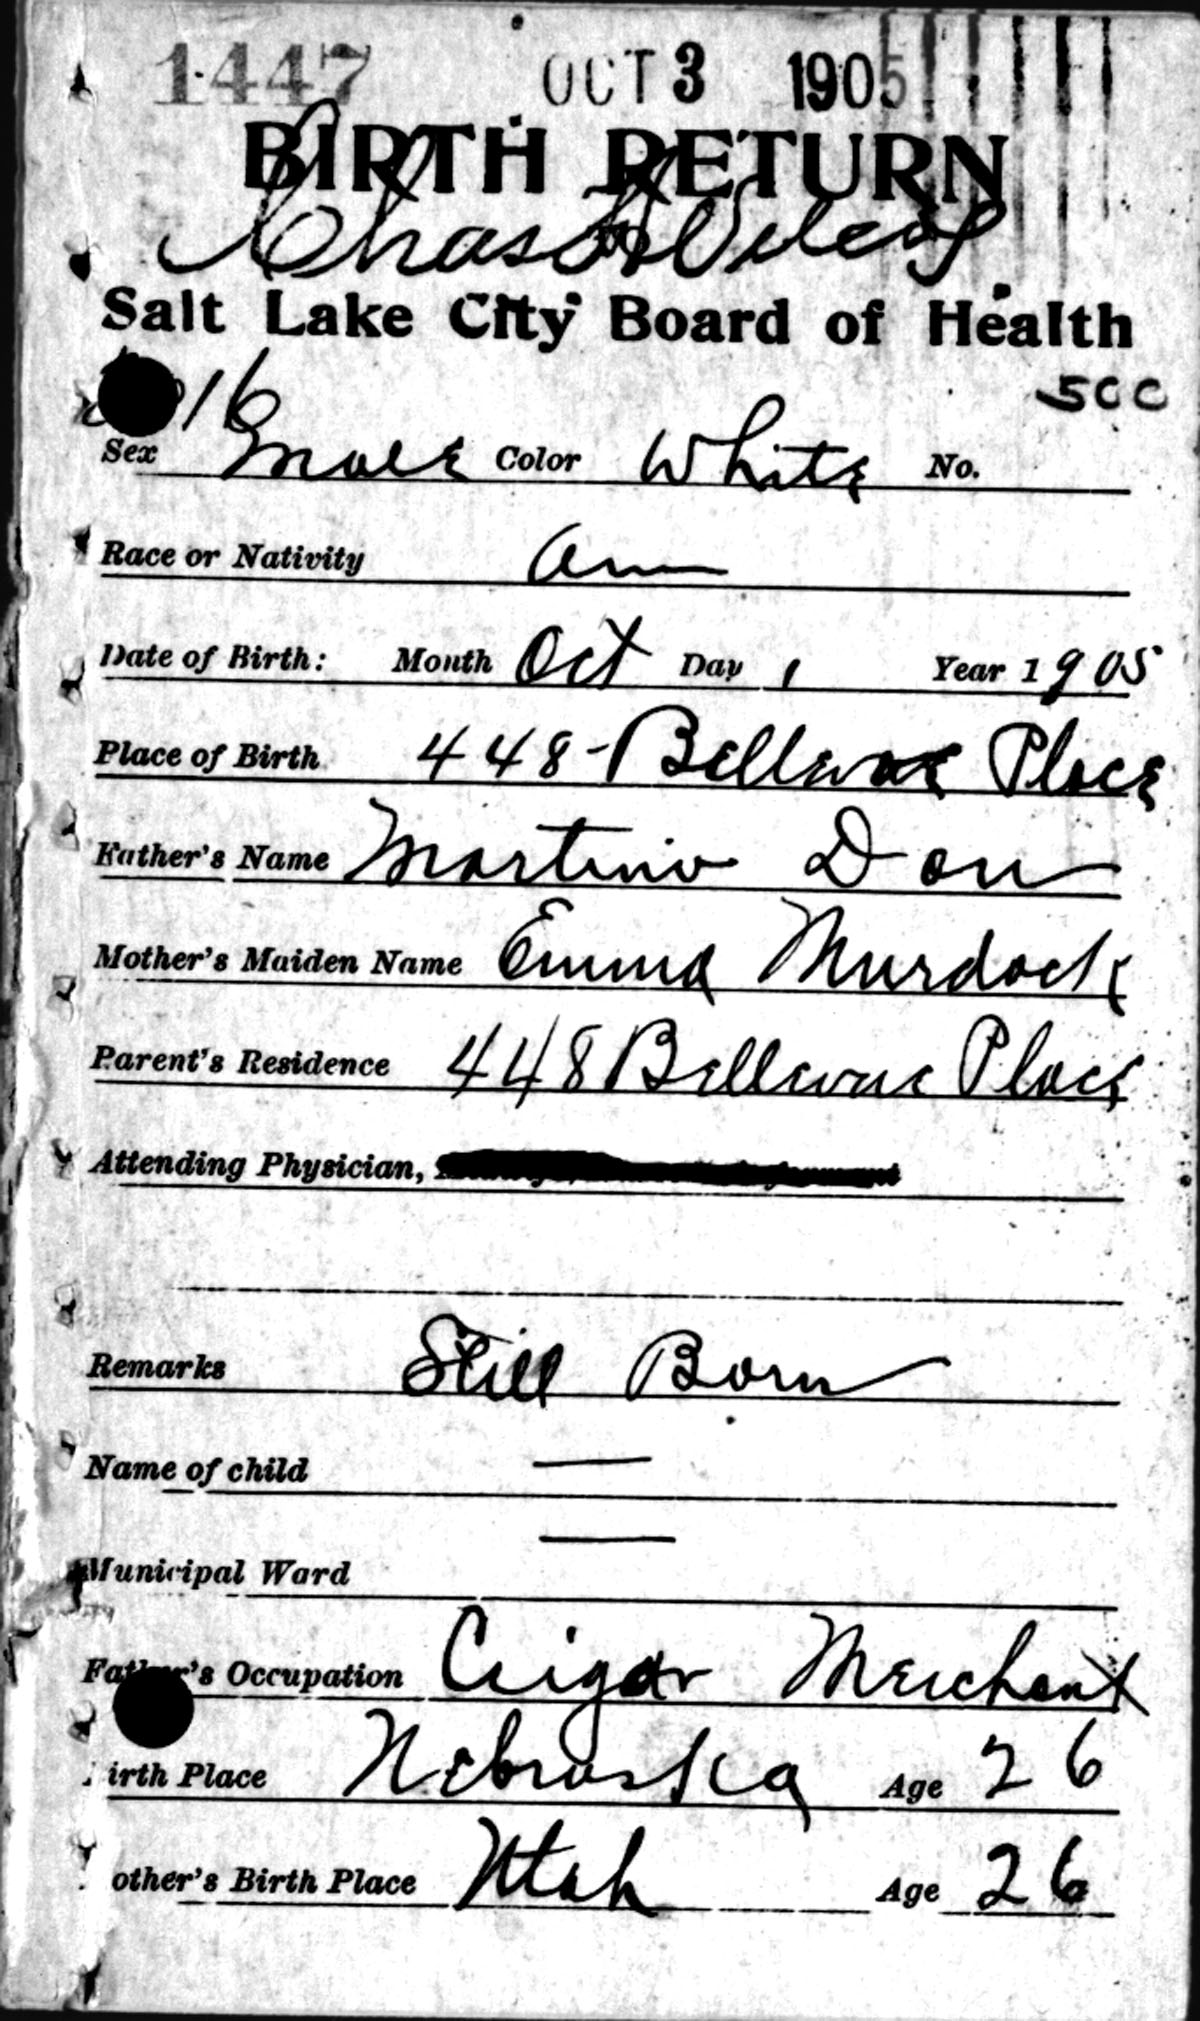 1447 OCT 3 1905
BIRTH RETURN
Chas
Salt Lake City Board of Health
16 500
Sex Male Color White No.
Race or Nativity Am
Date of Birth: Month Oct Day 1 Year 1905
Place of Birth 448-Bellevue Place
Father's Name Martino Don
Mother's Maiden Name Emma Murdock
Parent's Residence 448 Bellevue Place
Attending Physician,
Remarks Still Born
Name of child —
Municipal Ward —
Father's Occupation Cigar Merchant
irth Place Nebraska Age 26
other's Birth Place Utah Age 26